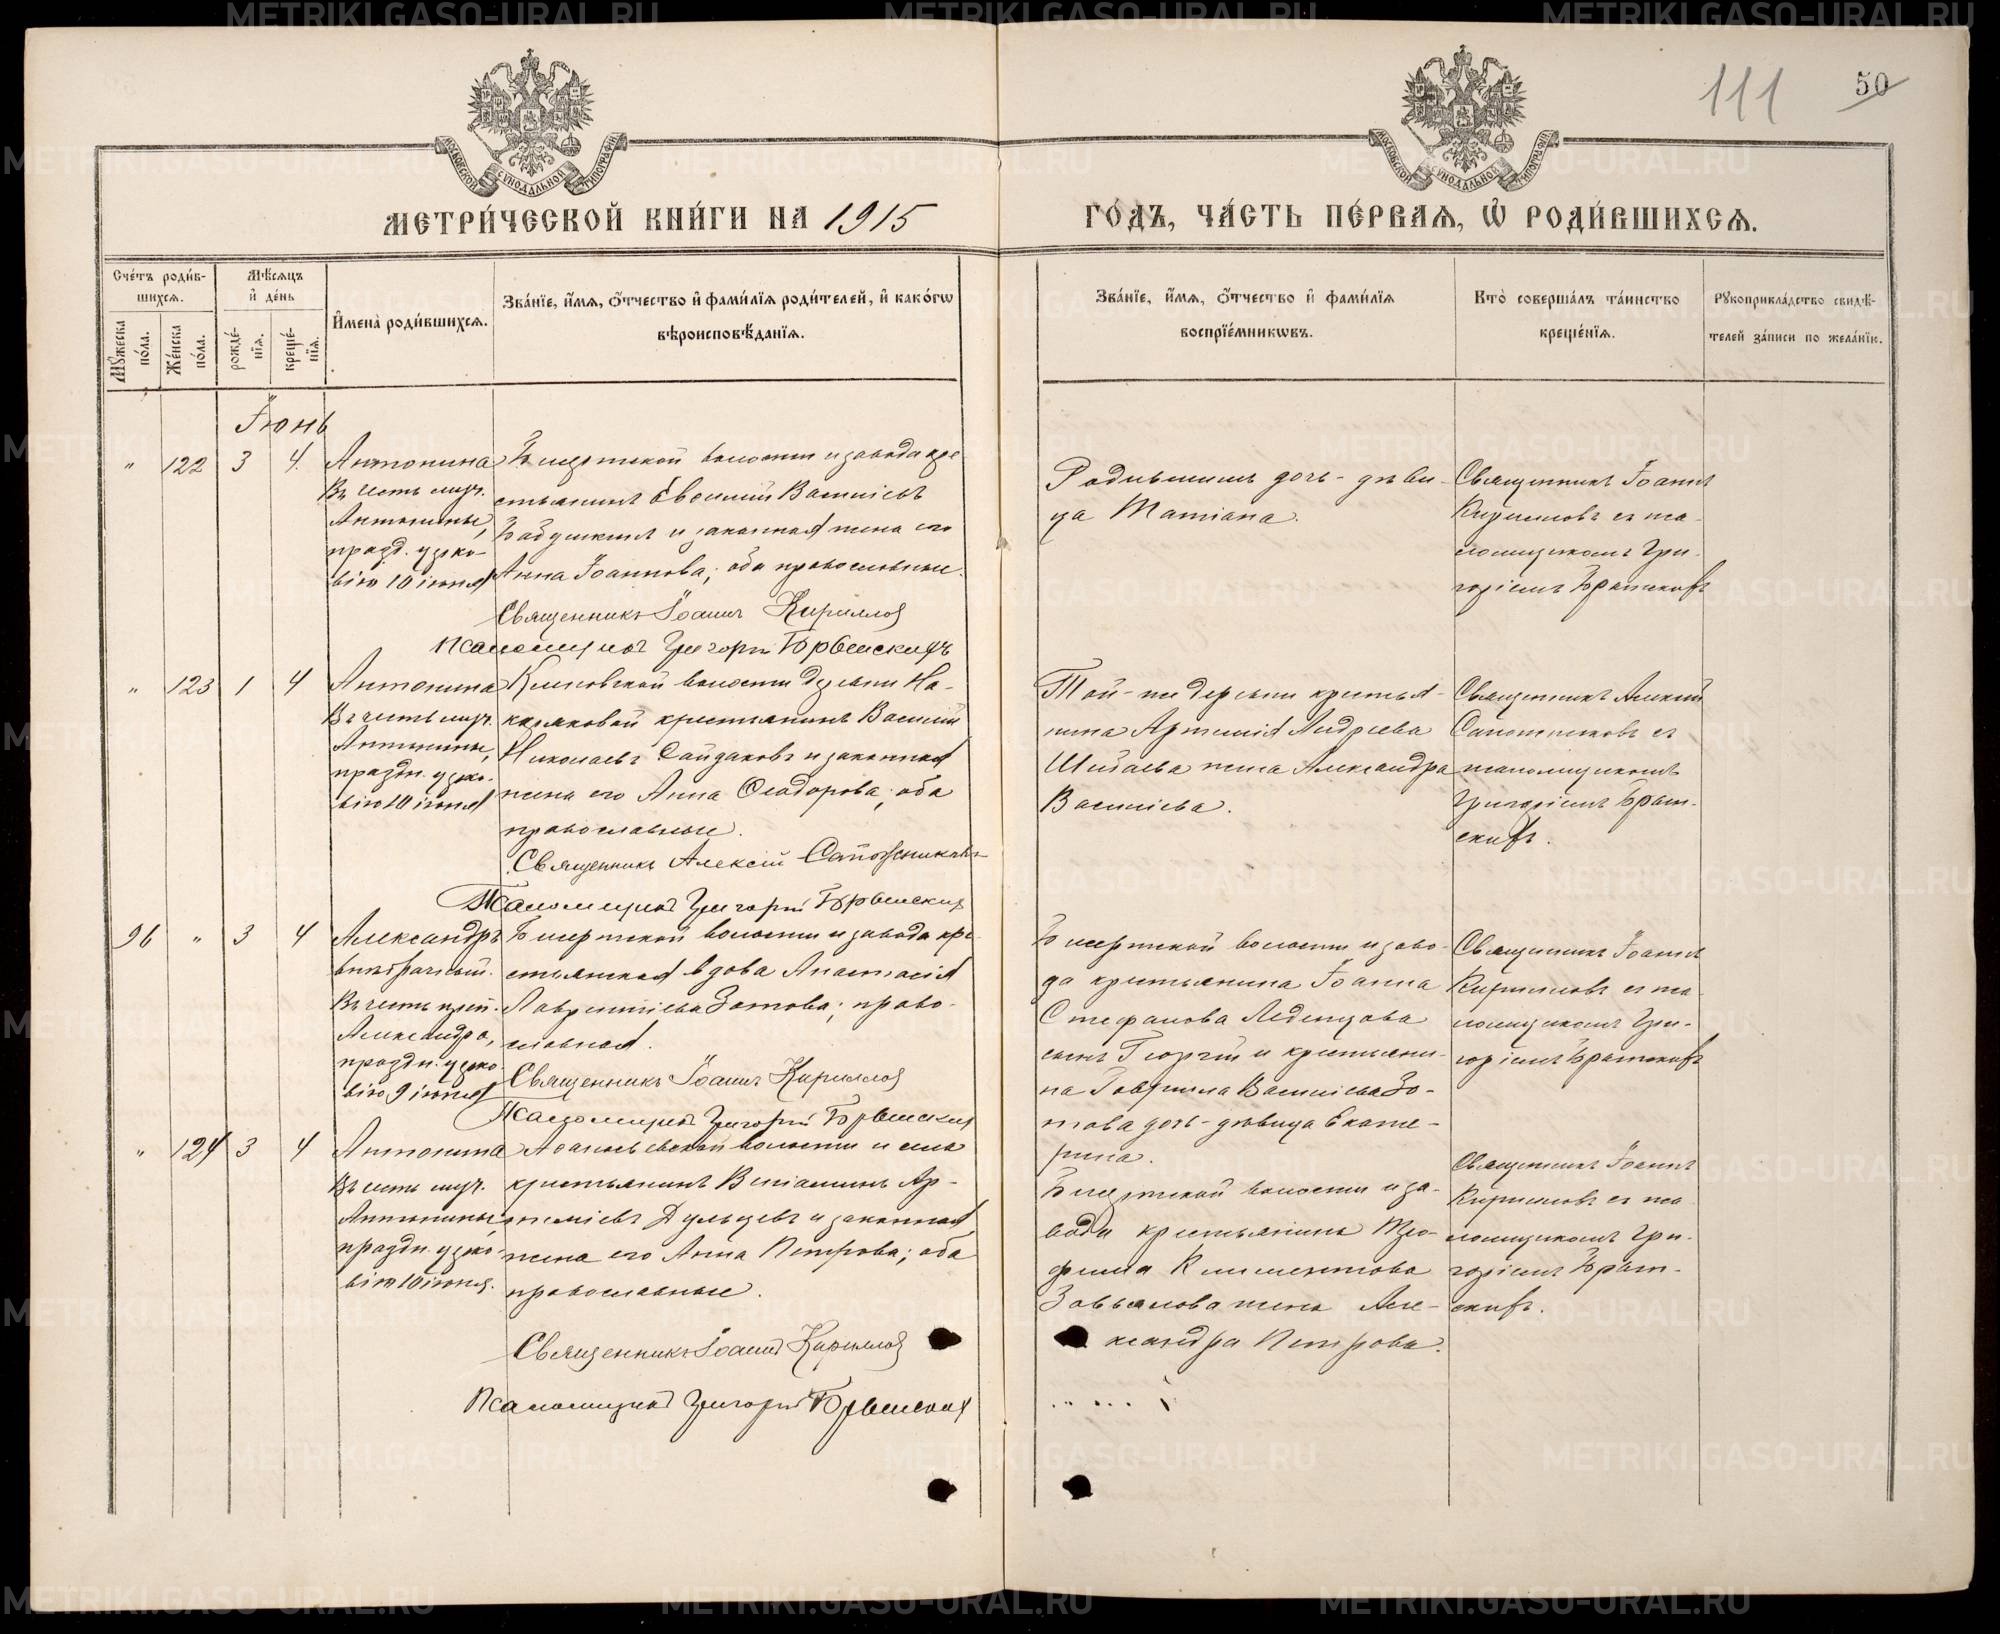 111
50
МОСКОВСКОЙ СѴНОДАЛЬНОЙ ТИПОГРАФІИ
МОСКОВСКОЙ СѴНОДАЛЬНОЙ ТИПОГРАФІИ
МЕТРИ́ЧЕСКОЙ КНИ́ГИ НА 1915
ГО́ДЪ, ЧА́СТЬ ПЕ́РВАѦ, Ѽ РОДИ́ВШИХСѦ.
Сче́тъ роди́в-
шихсѧ.
Мꙋ́жеска
по́ла.
Же́нска
по́ла.
Мѣ́сѧцъ
и҆ де́нь
рожде́-
нїѧ.
креще́-
нїѧ.
И҆мена̀ роди́вшихсѧ.
Зва́нїе, и҆́мѧ, ѻ҆́тчество и҆ фами́лїѧ роди́телей, и҆ како́гѡ
вѣроисповѣ́данїѧ.
Зва́нїе, и҆́мѧ, ѻ҆́тчество и҆ фами́лїѧ
воспрїе́мникѡвъ.
Кто̀ соверша́лъ та́инство
креще́нїѧ.
Рꙋкоприкла́дство свидѣ́-
телей за́писи по жела́нїю.
Іюнь
" 122 3 4.
Антонина
Въ честь муч.
Антонины,
празд. церко-
вію 10 іюня
Бисертской волости и завода кре-
стьянинъ Евсимій Васильевъ
Бабушкинъ и законная жена его
Анна Іоаннова; оба православные.
Священникъ Іоаннъ Кириллов
Псаломщикъ Григорій Братскихъ
Родившимъ дочь-дѣви-
ца Татіана.
Священникъ Іоаннъ
Кирилловъ съ пса-
ломщикомъ Гри-
горіемъ Братскихъ
" 123 1 4
Антонина
Въ честь муч.
Антонины,
праздн. церко-
вію 10 іюня
Кленовской волости деревни На-
кряковой крестьянинъ Василій
Николаевъ Сайдаковъ и законная
жена его Анна Ѳеодорова; оба
православные.
Священникъ Алексій Сапожниковъ
Псаломщикъ Григорій Братскихъ
Той-же деревни крестья-
нина Артемія Андреева
Шибаева жена Александра
Васильева.
Священникъ Алексій
Сапожниковъ съ
псаломщикомъ
Григоріемъ Брат-
скихъ.
96 " 3 4
Александръ
внѣбрачный.
Въ честь преп.
Александра,
праздн. церко-
вію 9 іюня
Бисертской волости и завода кре-
стьянская вдова Анастасія
Лаврентіева Зотова; право-
славная.
Священникъ Іоаннъ Кириллов
Псаломщикъ Григорій Братских
Бисертской волости и заво-
да крестьянина Іоанна
Стефанова Леденцова
сынъ Георгій и крестьяни-
на Гавриила Васильева Зо-
това дочь-дѣвица Екате-
рина.
Священникъ Іоаннъ
Кирилловъ съ пса-
ломщикомъ Гри-
горіемъ Братскихъ
" 124 3 4
Антонина
Въ честь муч.
Антонины,
праздн. церко-
вію 10 іюня.
Афанасьевской волости и села
крестьянинъ Веніаминъ Ар-
теміевъ Дульцевъ и законная
жена его Анна Петрова; оба
православные.
Священникъ Іоаннъ Кириллов
Псаломщикъ Григорій Братских
Бисертской волости и за-
вода крестьянина Тро-
фима Климентова
Завьялова жена Але-
ксандра Петрова.
Священникъ Іоаннъ
Кирилловъ съ пса-
ломщикомъ Гри-
горіемъ Брат-
скихъ.
METRIKI.GASO-URAL.RU